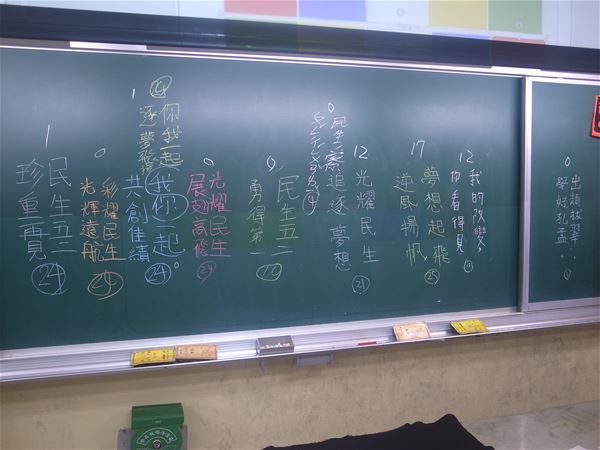 0
出類拔萃
學好孔孟
12
我的改變
你看得見
17
夢想起飛
逆風揚帆
25
12
光耀民生
追逐夢想
21
0
9
民生五二
勇得第一
0
光耀民生
展翅高
24
1
24
你我一起
逐夢發
我你一起
共創佳績
24
0
彩耀民生
光輝遠航
24
1
民生五二
珍重再見
24